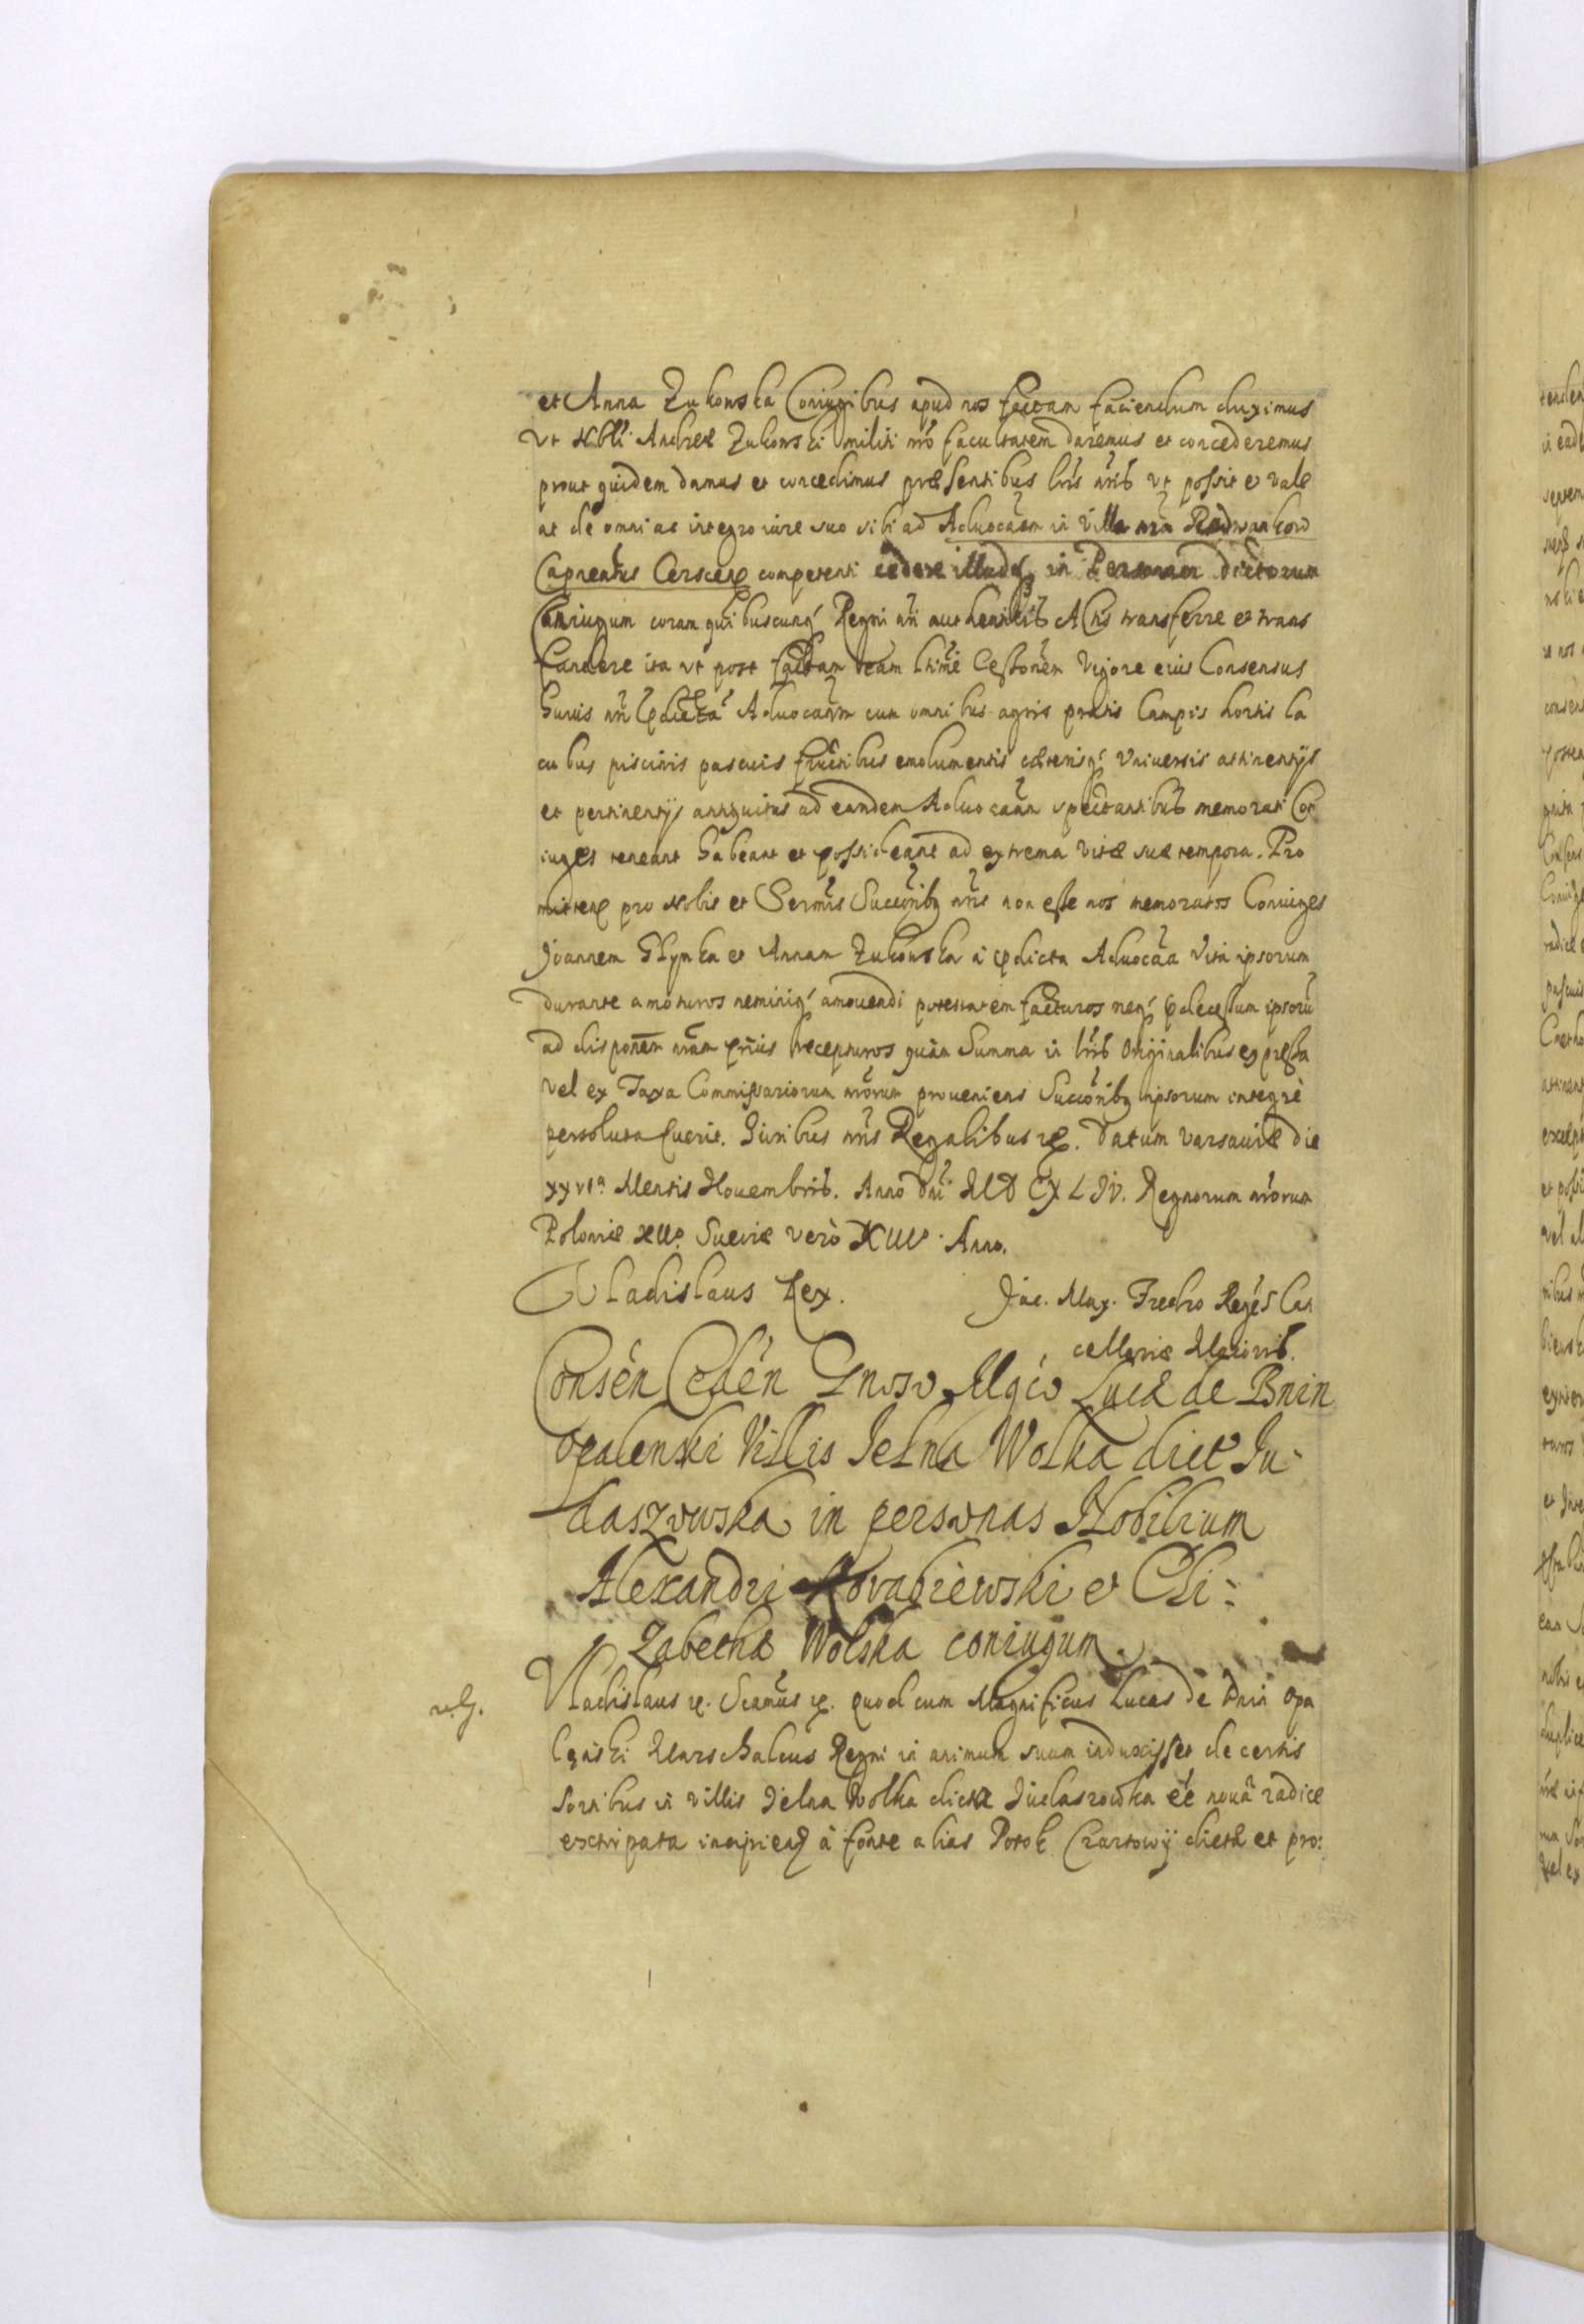 et Anna Zukowska Coniugibus apud nos factam faciendum duximus
Vt Nbli Andreæ Zukowski militi nro facultatem daremus et concederemus
prout quidem damus et concedimus præsentibus lris nris vt possit et vale
at de omni ac integro iure suo sibi ad Aduocaam in Villa nra Radwankow
Capneatus Cerscen competenti cedere illudq in Personam dictorum
Coniugum coram quibuscunq Regni nri authenticis Actis transferre et trans
fundere ita vt post factam tam ltimè Cessionem Vigore eius Consensus
huius nri pdictā Aduocaam cum omnibus agris pratis Campis hortis la
cubus piscinis pascuis fructibus emolumentis cæterisq Vniuersis attinentijs
et pertinentijs antiquitus ad eandem Aduocaam spectantibus memorati Con
iuges teneant habeant et possideant ad extrema vitæ suæ tempora. Pro
mitten pro Nobis et Sermis Succoribq nris non esse nos memoratos Coniuges
Joannem Glynka et Annam Zukowska à pdicta Aduocaa Vita ipsorum
durante amoturos neminiq amouendi potestatem facturos neq pdecessum ipsorū
ad disponem nram prius recepturos quàm Summa in lris Originalibus expressa
vel ex Taxa Commissariorum nrorum proueniens Succoribq ipsorum integrè
persoluta fuerit. Iuribus nris Regalibus rę. Datum Varsauiæ die
xxvia Mensis Nouembris. Anno Dni MDCXLIV. Regnorum nrorum
Poloniæ XIIo. Sueciæ verò XIIIo. Anno.
Vladislaus Rex. Jac. Max. Fredro Regēs Can
cellariæ Maioris.
Consēn Cedēn Gnoso Mgco Lucæ de Bnin
Opalenski Villis Jelna Wolka dict Ju-
daszowska in personas Nobilium
Alexandri Kowalrewski et Eli-
zabethæ Wolska coniugum.
Vladislaus rę. Scamus rę. quod cum Magnificus Lucas de Bnin Opa
lęnski Marschalcus Regni in animum suum induxisset de certis
sortibus in villis Jelna Wolka dicta Judaszowka ee nouā radice
extirpata incipien à fonte alias Potok Czartowij dictæ et pro: